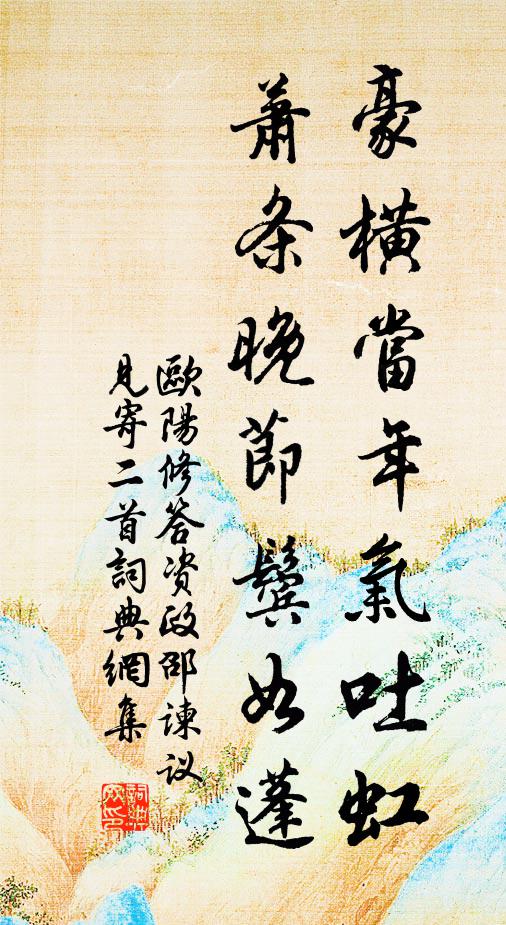 豪橫當年氣吐虹
蕭条晚節鬢如蓬
歐陽修答资政邵諫议
見寄二首詞典網集